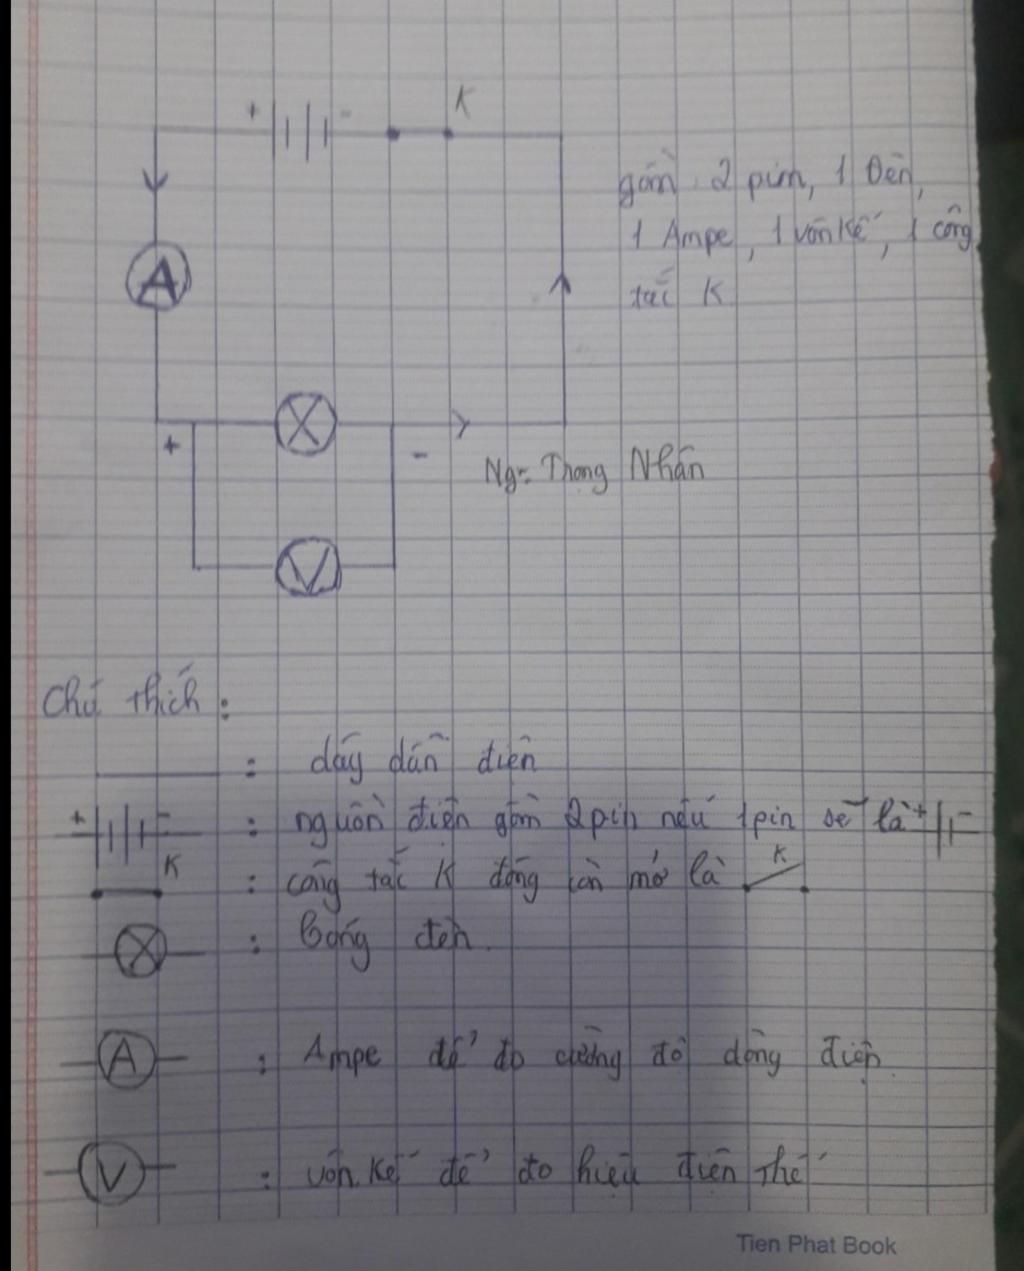 + - K
gồm 2 pin, 1 Đèn,
1 Ampe, 1 vôn kế, 1 công
tắc K
A
+ -
Ng: Trọng Nhân
V
Chú thích:
: dây dẫn điện
+ - : nguồn điện gồm 2 pin nếu 1 pin sẽ là + -
K : công tắc K đóng còn mở là K
: Bóng đèn
A : Ampe để đo cường độ dòng điện
V : vôn kế để đo hiệu điện thế
Tien Phat Book